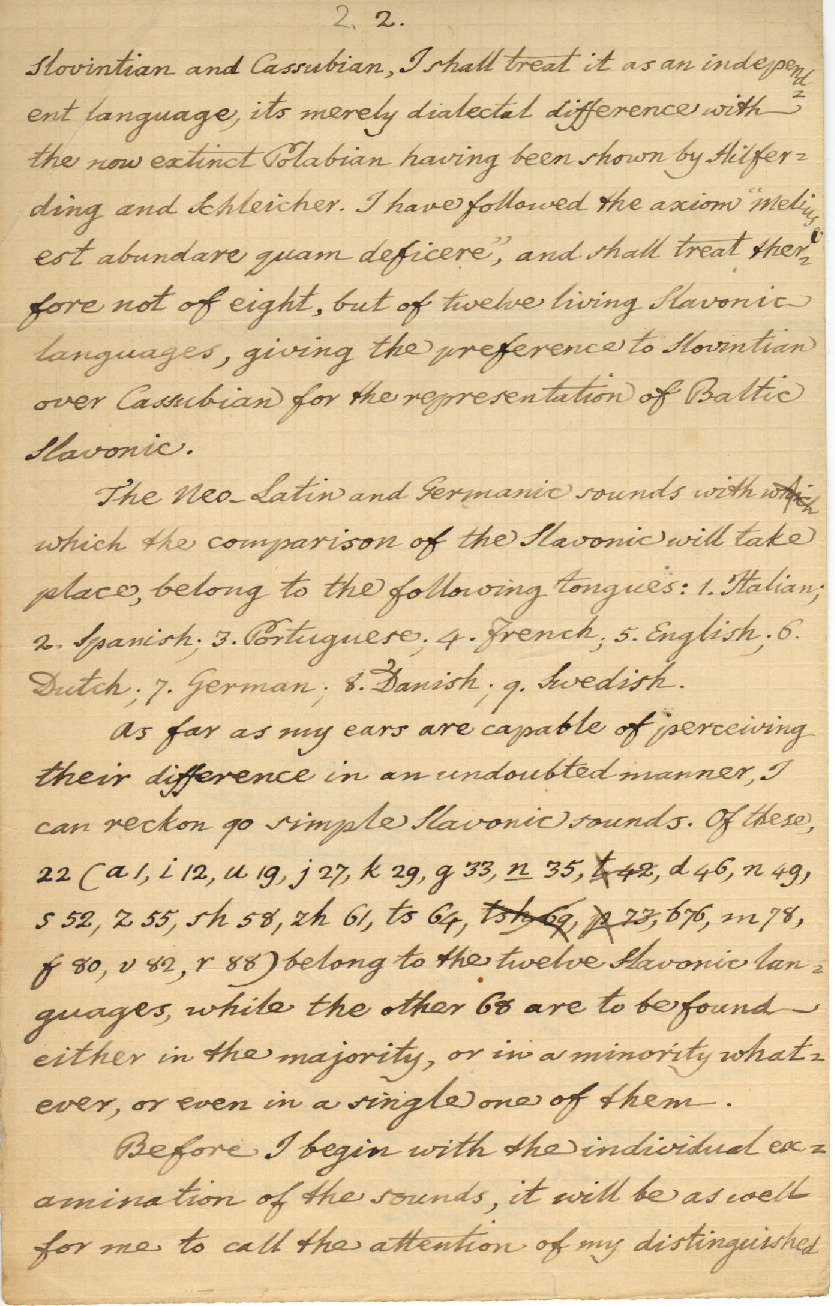 2. 2.
Slovintian and Cassubian, I shall treat it as an independ=
ent language, its merely dialectal difference with
the now extinct Polabian having been shown by Hilfer=
ding and Schleicher. I have followed the axiom "Melius
est abundare quam deficere", and shall treat ther=
fore not of eight, but of twelve living Slavonic
languages, giving the preference to Slovintian
over Cassubian for the representation of Baltic
Slavonic.
The Neo-Latin and Germanic sounds with which
which the comparison of the Slavonic will take
place, belong to the following tongues: 1. Italian;
2. Spanish; 3. Portuguese; 4. French; 5. English; 6.
Dutch; 7. German; 8. Danish; 9. Swedish.
As far as my ears are capable of perceiving
their difference in an undoubted manner, I
can reckon 90 simple Slavonic sounds. Of these,
22 (a 1, i 12, u 19, j 27, k 29, g 33, n 35, t 42, d 46, n 49,
s 52, z 55, sh 58, zh 61, ts 64, tsh 69, p 73, b 76, m 78,
f 80, v 82, r 88) belong to the twelve Slavonic lan=
guages, while the other 68 are to be found
either in the majority, or in a minority what=
ever, or even in a single one of them.
Before I begin with the individual ex=
amination of the sounds, it will be as well
for me to call the attention of my distinguished